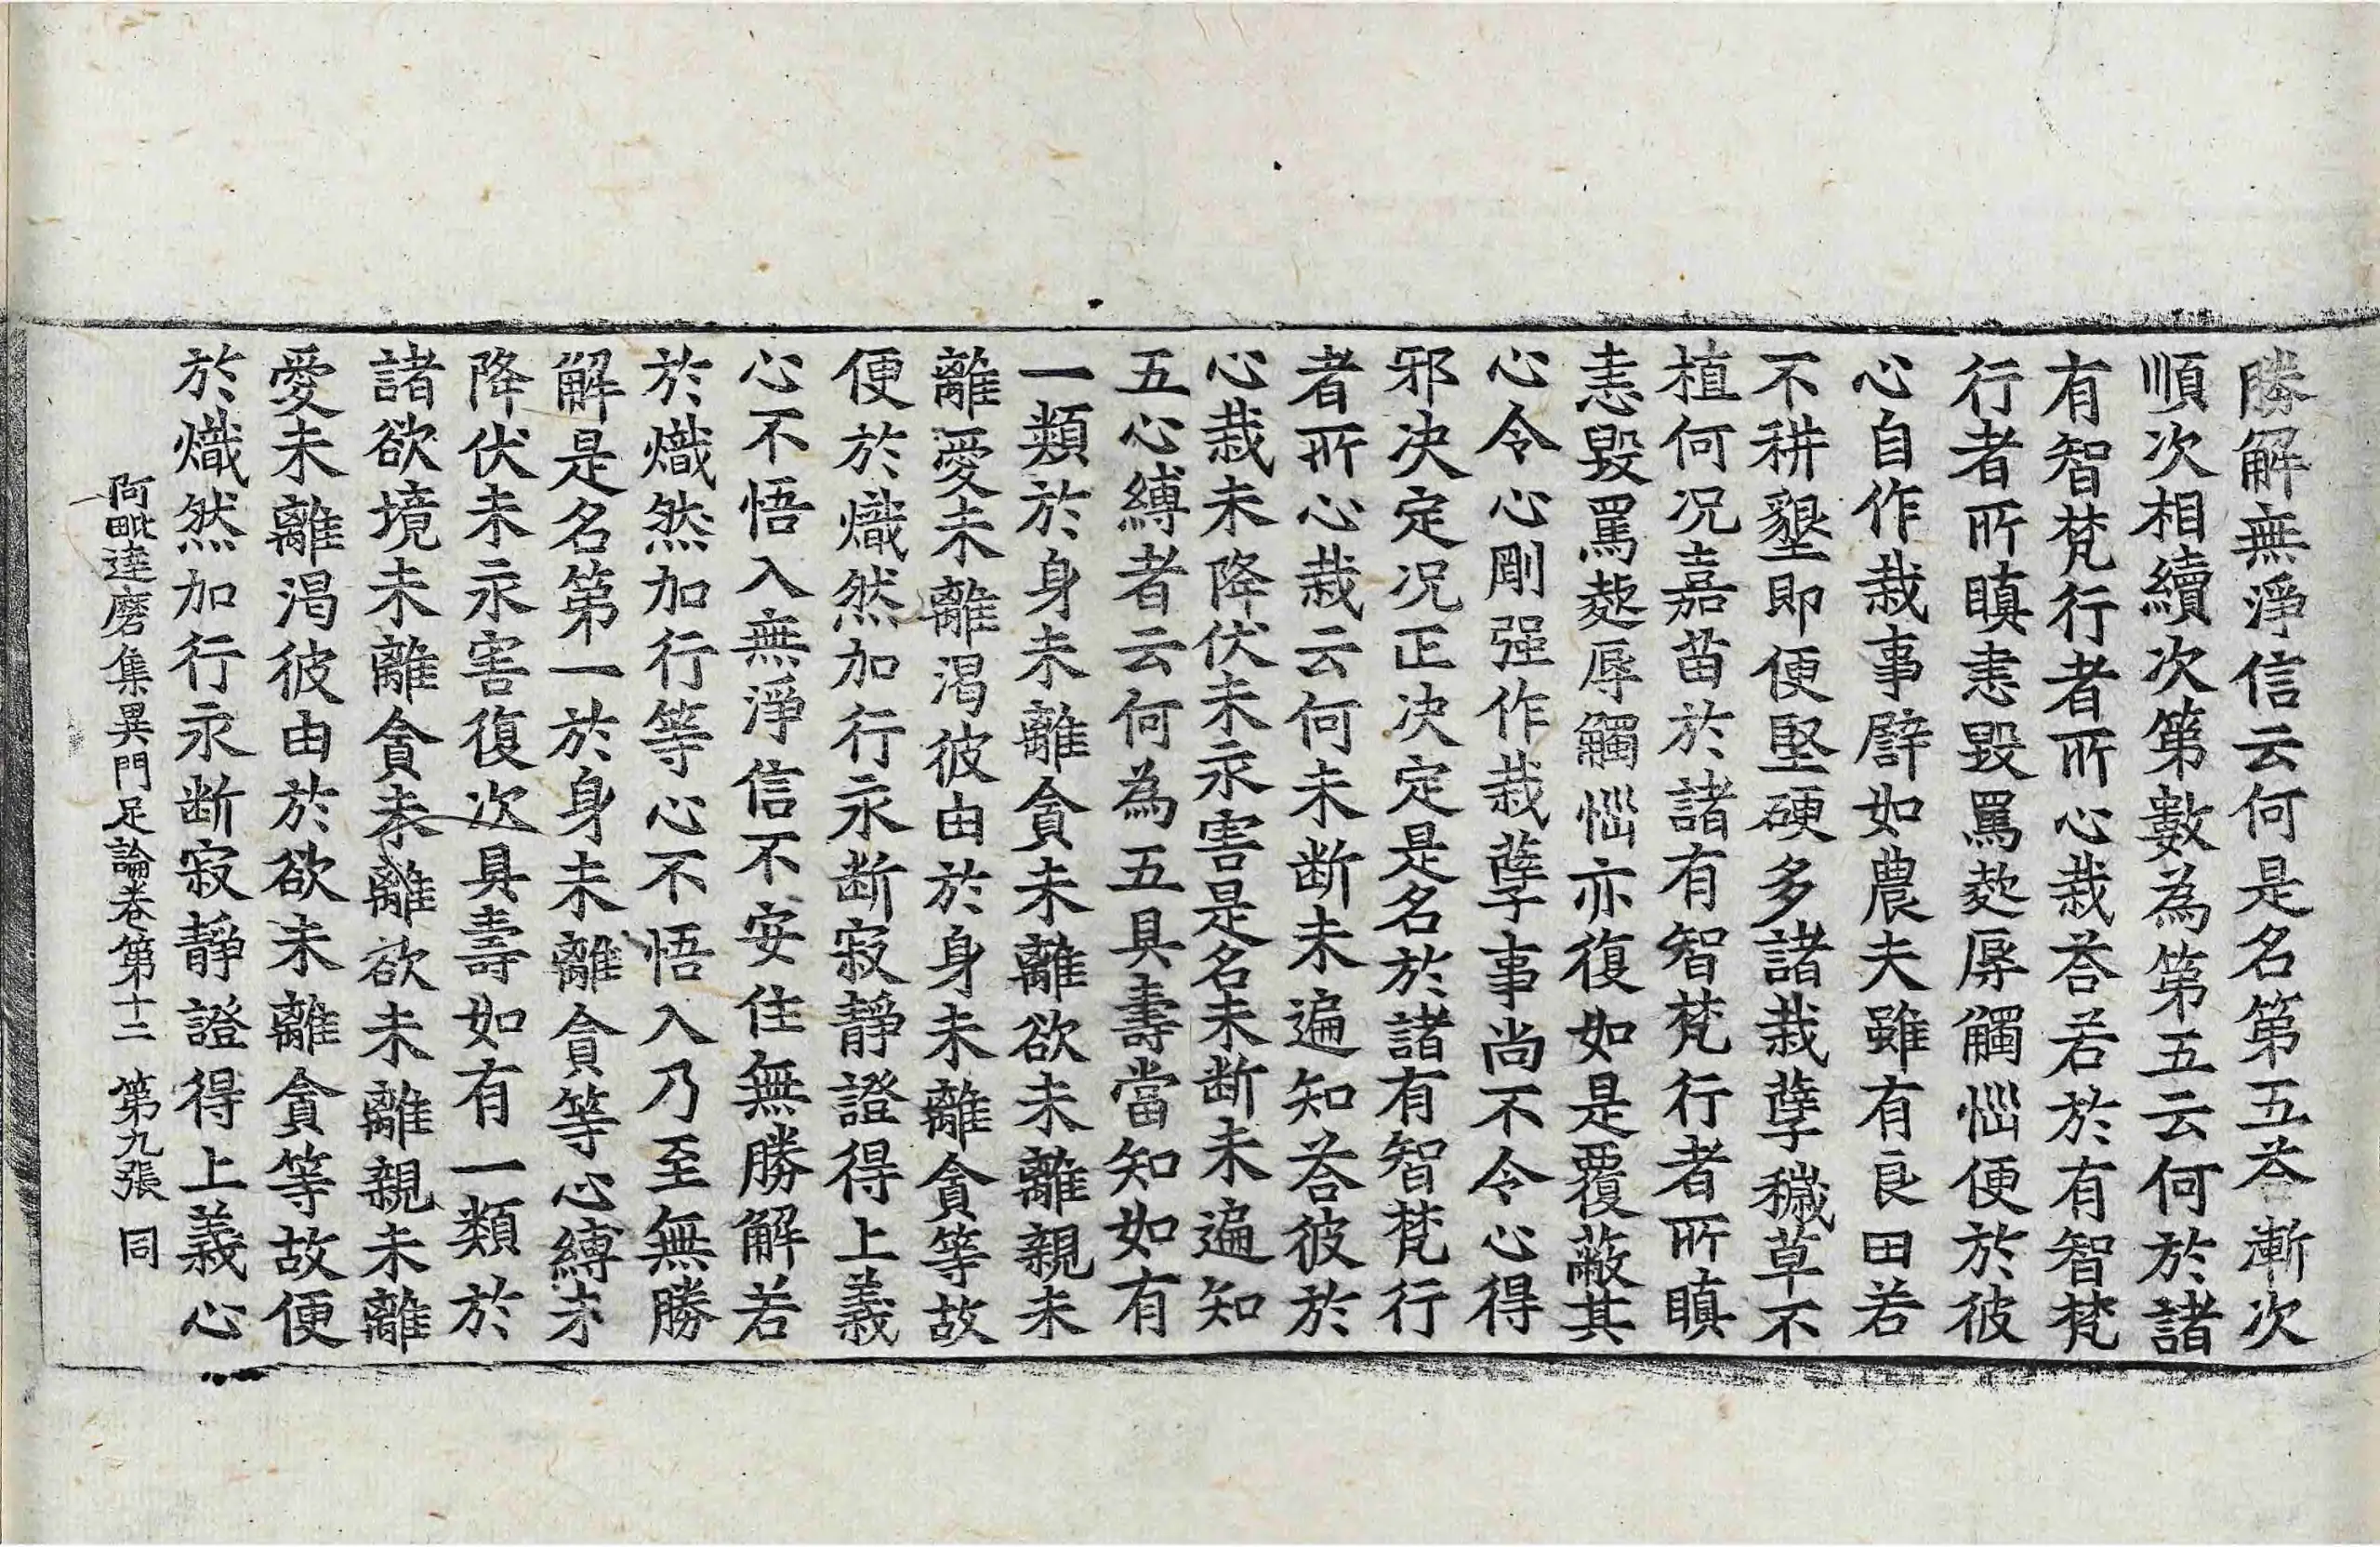 勝解無淨信云何是名第五荅漸次
順次相續次第數為第五云何於諸
有智梵行者所心栽荅若於有智梵
行者所瞋恚毀罵𣣋辱觸惱便於彼
心自作栽事譬如農夫雖有良田若
不耕墾即便堅硬多諸栽孽穢草不
植何况嘉苗於諸有智梵行者所瞋
恚毀罵𣣋辱觸惱亦復如是覆蔽其
心令心剛强作栽孽事尚不令心得
邪决定况正决定是名於諸有智梵行
者所心栽云何未斷未遍知荅彼於
心栽未降伏未永害是名未断未遍知
五心縛者云何為五具壽當知如有
一類於身未離貪未離欲未離親未
離愛未離渴彼由於身未離貪等故
便於熾然加行永断寂靜證得上義
心不悟入無淨信不安住無勝解若
於熾然加行等心不悟入乃至無勝
解是名第一於身未離貪等心縛未
降伏未永害復次具壽如有一類於
諸欲境未離貪未離欲未離親未離
愛未離渴彼由於欲未離貪等故便
於熾然加行永断寂靜證得上義心
阿毗達磨集異門足論卷第十二 第九張 同